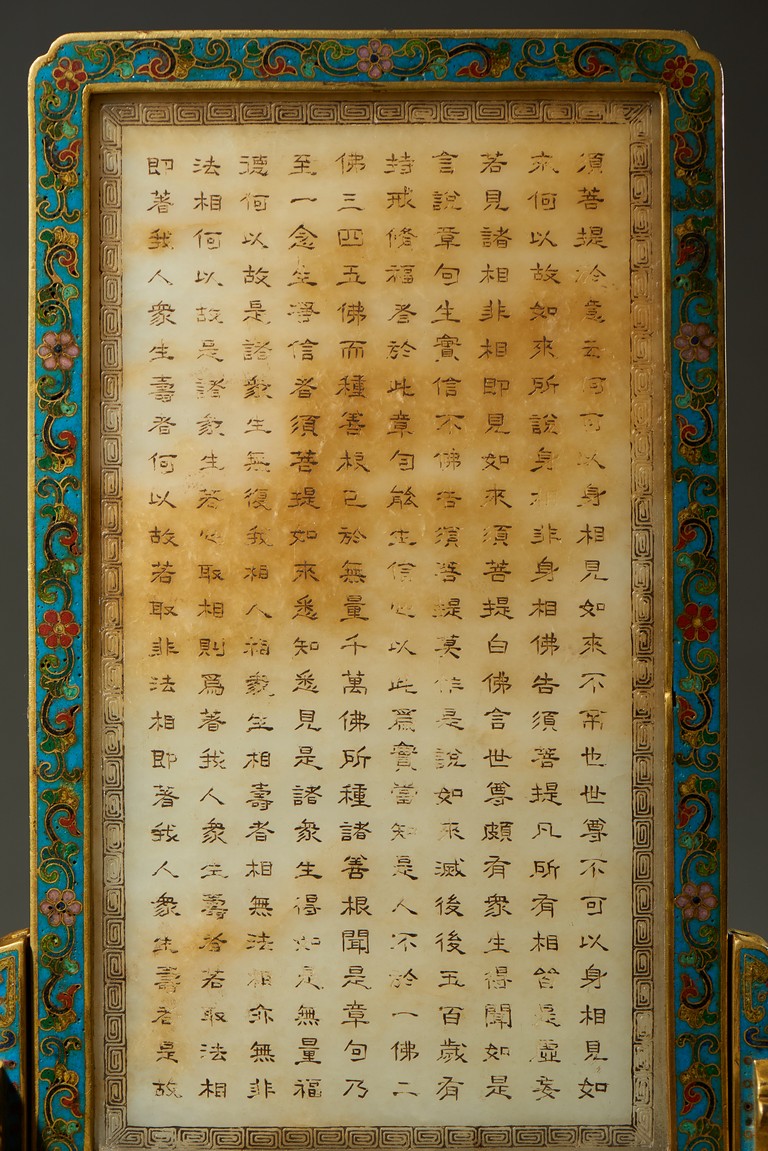 須菩提於意云何可以身相見如來不不也世尊不可以身相見如
來何以故如來所說身相非身相佛告須菩提凡所有相皆是虛妄
若見諸相非相即見如來須菩提白佛言世尊頗有眾生得聞如是
言說章句生實信不佛告須菩提莫作是說如來滅後後五百歲有
持戒脩福者於此章句能生信心以此為實當知是人不於一佛二
佛三四五佛而種善根已於無量千萬佛所種諸善根聞是章句乃
至一念生淨信者須菩提如來悉知悉見是諸眾生得如是無量福
德何以故是諸眾生無復我相人相眾生相壽者相無法相亦無非
法相何以故是諸眾生若心取相則為著我人眾生壽者若取法相
即著我人眾生壽者何以故若取非法相即著我人眾生壽者是故